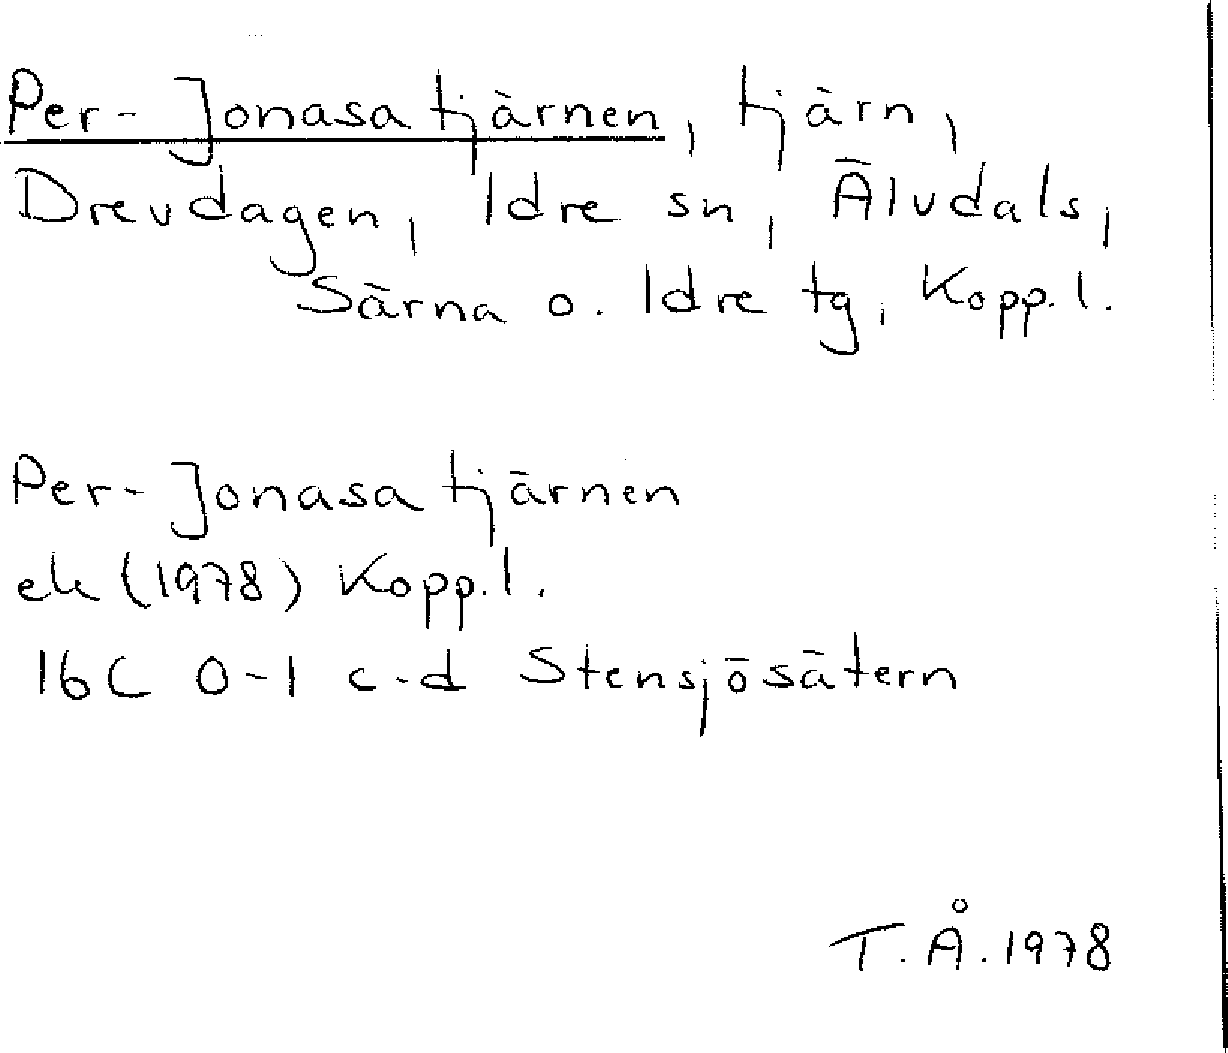 Per-Jonasa tjärnen, tjärn,
Drevdagen, Idre sn, Älvdals,
Särna o. Idre tg, Kopp. l.
Per-Jonasa tjärnen
ek (1978) Kopp. l.
16C 0-1 c-d Stensjösätern
T. Å. 1978